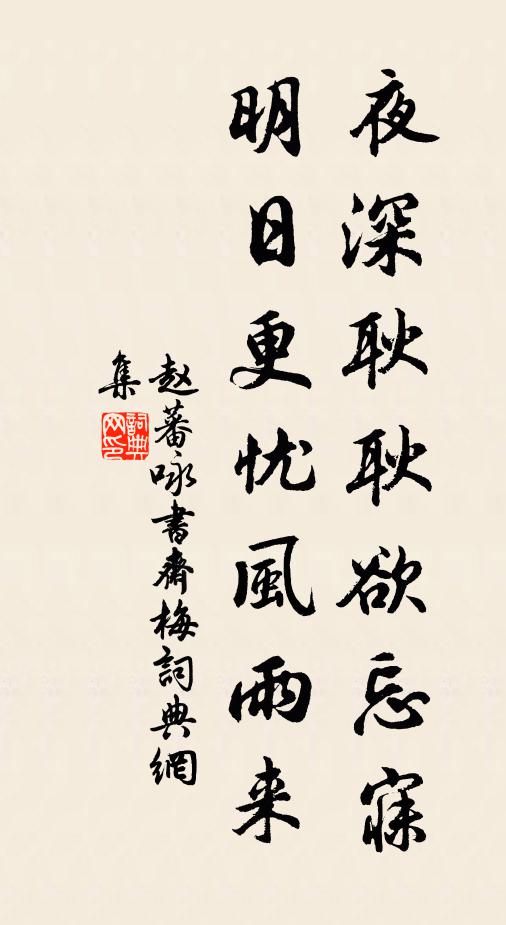 夜深耿耿欲忘寐
明日更忧風雨来
赵蕃咏書齋梅詞典網
集
詞典
网印